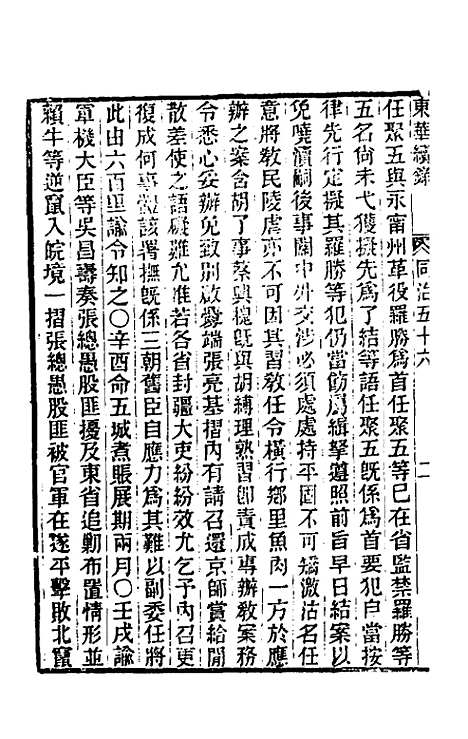 東華續錄 同治五十六 二
任聚五與永甯州革役羅勝為首任聚五等已在省監禁羅勝等
五名尚未弋獲擬先為了結等語任聚五既係為首要犯自當按
律先行定擬其羅勝等犯仍當飭屬緝拏遵照前旨早日結案以
免曉瀆嗣後事關中外交涉必須處處持平固不可矯激沽名任
意將教民陵虐亦不可任其習教任令橫行鄉里魚肉一方於應
辦之案含胡了事蔡興槐既與胡縛理熟習卽責成專辦教案務
令悉心妥辦免致別啟釁端張亮基摺內有請召還京師賞給閒
散差使之語礙難允准若各省封疆大吏紛紛效尤乞予內召更
復成何事體該署撫既係三朝舊臣自應力為其難以副委任將
此由六百里諭令知之○辛酉命五城煮賑展期兩月○壬戌諭
軍機大臣等吳昌壽奏張總愚股匪擾及東省追勦布置情形並
賴牛等逆竄入皖境一摺張總愚股匪被官軍在遂平擊敗北竄